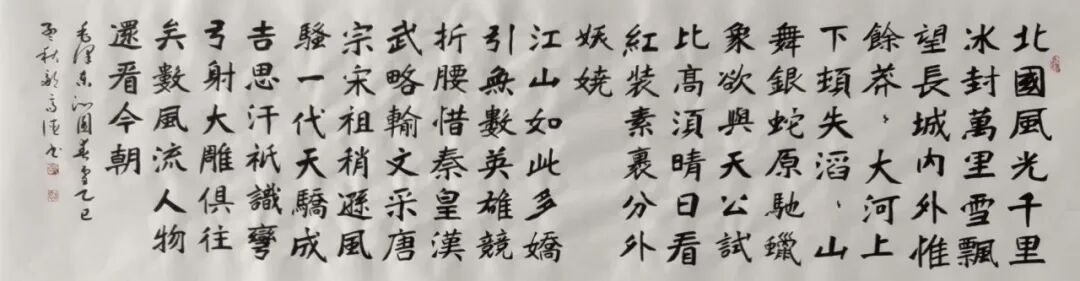 北國風光千里
冰封萬里雪飄
望長城内外惟
餘莽、大河上
下頓失滔、山
舞銀蛇原馳蠟
象欲與天公試
比高須晴日看
紅裝素裹分外
妖嬈
江山如此多嬌
引無數英雄競
折腰惜秦皇漢
武略輸文采唐
宗宋祖稍遜風
騷一代天驕成
吉思汗祇識彎
弓射大雕俱往
矣數風流人物
還看今朝
毛澤東沁園春雪乙巳
孟秋